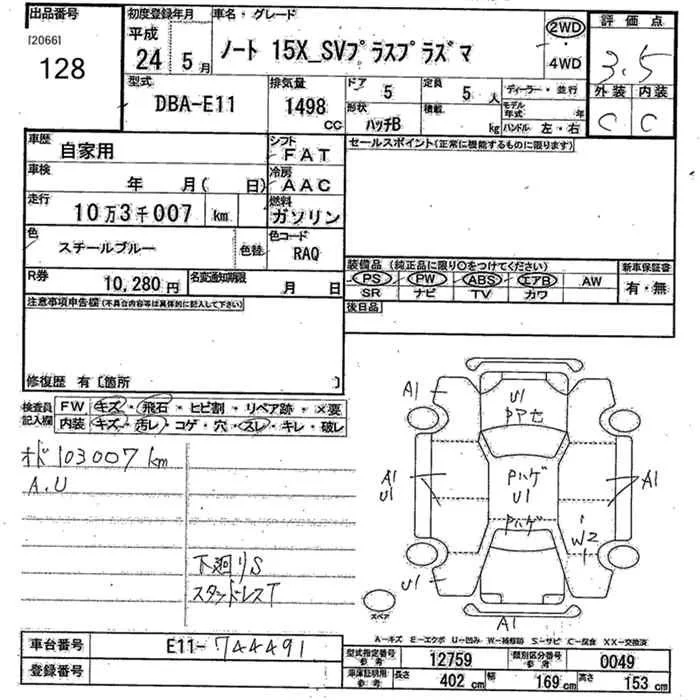 出品番号
[2066]
128
初度登録年月
平成
24 5月
車名・グレード
ノート 15X_SVプラスプラズマ
2WD
・
4WD
評価点
3.5
外装 内装
C C
型式
DBA-E11
排気量
1498
CC
ドア 5
定員 5 人
形状
ハッチB
積載
kg
ディーラー・並行
モデル
年式 年
ハンドル 左・右
車歴
自家用
シフト
FAT
車検
年 月( 日)
冷房
AAC
走行
10万3千007 km
燃料
ガソリン
色
スチールブルー
色替
色コード
RAQ
R券
10,280円
名変通知期限
月 日
セールスポイント(正常に機能するものに限ります)
装備品 (純正品に限り○をつけてください)
PS PW ABS エアB AW
SR ナビ TV カワ
新車保証書
有・無
後日品
注意事項申告欄(不具合内容等は具体的に記入して下さい)
修復歴 有〔箇所 〕
検査員
記入欄
FW キズ・飛石・ヒビ割・リペア跡・×要
内装 キズ・汚レ・コゲ・穴・スレ・キレ・破レ
オド103007km
A.U
下廻りS
スタッドレスT
A1
U1
Pハゲ
U1
Pハゲ
A1
U1
A1
W2
U1
A1
スペア
A-キズ E-エクボ U-凹み W-補修跡 S-サビ C-腐食 XX-交換済
車台番号 E11-744491
登録番号
型式指定番号
参考
12759
類別区分番号
参考
0049
車庫証明用
参考
長さ 402 cm 幅 169 cm 高さ 153 cm